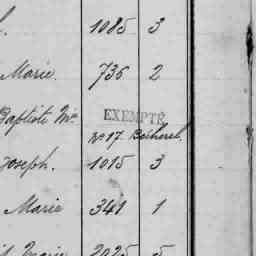 1085 3
Marie. 735 2
Baptiste Mie EXEMPTÉ
No 17 Bécherel.
Joseph. 1015 3
Marie 341 1
2025 5